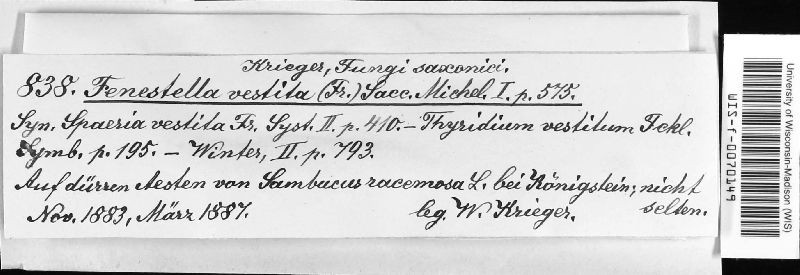 Krieger, Fungi saxonici.
838. Fenestella vestita (Fr.) Sacc. Michel. I. p. 575.
Syn. Spaeria vestita Fr. Syst. II. p. 410. – Thyridium vestitum Fckl.
Symb. p. 195. – Winter, II. p. 793.
Auf dürren Aesten von Sambucus racemosa L. bei Königstein; nicht selten.
Nov. 1883, März 1887. leg. W. Krieger.
University of Wisconsin-Madison (WIS)
WIS-f-0070149